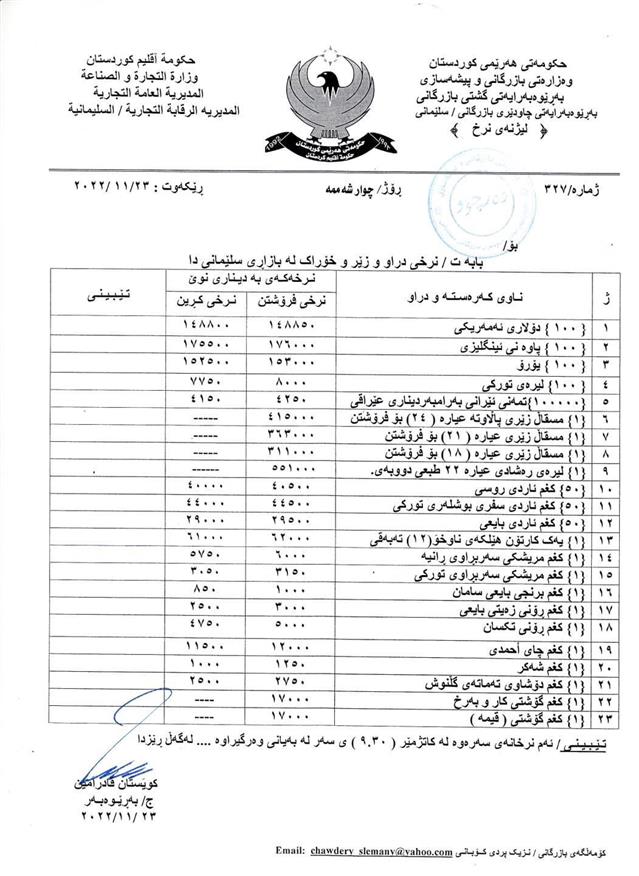 حكومة أقليم كوردستان
وزارة التجارة و الصناعة
المديرية العامة التجارية
المديريه الرقابة التجارية / السليمانية
حکومەتی هەرێمی کوردستان
وەزارەتی بازرگانی و پیشەسازی
بەڕێوەبەرایەتی گشتی بازرگانی
بەڕێوەبەرایەتی چاودێری بازرگانی / سلێمانی
﴿ لیژنەی نرخ ﴾
1992
حکومەتی هەرێمی کوردستان
حكومة اقليم كردستان
١٩٩٢
ژمارە/ ٣٢٧ ڕۆژ/ چوار شەممە ڕێکەوت : ٢٠٢٢/١١/٢٣
بۆ/
بابه ت / نرخی دراو و زێر و خۆراک له بازاڕی سلێمانی دا
ژ ناوی کەرەستە و دراو نـرخـەکـەی بە دیـناری نوێ تـێـبـیـنی
نرخی فرۆشتن نرخی کڕین
١ { ١٠٠ } دۆلاری ئەمەریکی ١٤٨٨٥٠ ١٤٨٨٠٠
٢ { ١٠٠ } پاوه نی ئینگلیزی ١٧٦٠٠٠ ١٧٥٥٠٠
٣ { ١٠٠ } یۆرۆ ١٥٣٠٠٠ ١٥٢٥٠٠
٤ { ١٠٠ } لیرەی تورکی ٨٠٠٠ ٧٧٥٠
٥ {١٠٠٠٠٠}تمەنی ئێرانی بەرامبەردیناری عێراقی ٤٢٥٠ ٤١٥٠
٦ {١} مسقاڵ زێری پاڵاوتە عیارە ( ٢٤ ) بۆ فرۆشتن ٤١٥٠٠٠ -----
٧ {١} مسقاڵ زێری عیارە ( ٢١ ) بۆ فرۆشتن ٣٦٣٠٠٠ -----
٨ {١} مسقاڵ زێری عیارە ( ١٨ ) بۆ فرۆشتن ٣١١٠٠٠ -----
٩ {١} لیرەی ڕەشادی عیارە ٢٢ طبعي دووبەی. ٥٥١٠٠٠ ------
١٠ {٥٠} کغم ئاردی روسی ٤٠٥٠٠ ٤٠٠٠٠
١١ {٥٠} کغم ئاردی سفری بوشلەری تورکی ٤٤٥٠٠ ٤٤٠٠٠
١٢ {٥٠} کغم ئاردی بایعی ٢٩٥٠٠ ٢٩٠٠٠
١٣ {١} یەک کارتۆن هێلکەی ناوخۆ(١٢) تەبەقی ٦٢٠٠٠ ٦١٠٠٠
١٤ {١} کغم مریشکی سەربراوی ڕانیە ٦٠٠٠ ٥٧٥٠
١٥ {١} کغم مریشکی سەربراوی تورکی ٣١٥٠ ٣٠٥٠
١٦ {١} کغم برنجی بایعی سامان ١٠٠٠ ٨٥٠
١٧ {١} کغم ڕۆنی زەیتی بایعی ٣٠٠٠ ٢٥٠٠
١٨ {١} کغم ڕۆنی تکسان ٥٠٠٠ ٤٧٥٠
١٩ {١} کغم چای أحمدی ١٢٠٠٠ ١١٥٠٠
٢٠ {١} کغم شەکر ١٢٥٠ ١٠٠٠
٢١ {١} کغم دۆشاوی تەماتەی گڵنوش ٢٧٥٠ ٢٥٠٠
٢٢ {١} کغم گۆشتی کار و بەرخ ١٧٠٠٠ ----
٢٣ {١} کغم گۆشتی ( قیمە ) ١٧٠٠٠ ----
تـێـبـیـنـی/ ئەم نرخانەی سەرەوە لە کاتژمێر ( ٩.٣٠ ) ی سەر لە بەیانی وەرگیراوە .... لەگەڵ ڕێزدا
کوێستان قادرامین
ج/ بەڕێـوەبـەر
٢٠٢٢/١١/٢٣
کۆمەڵگەی بازرگانی / نـزیـک پردی کـۆبـانـی Email: chawdery_slemany@yahoo.com